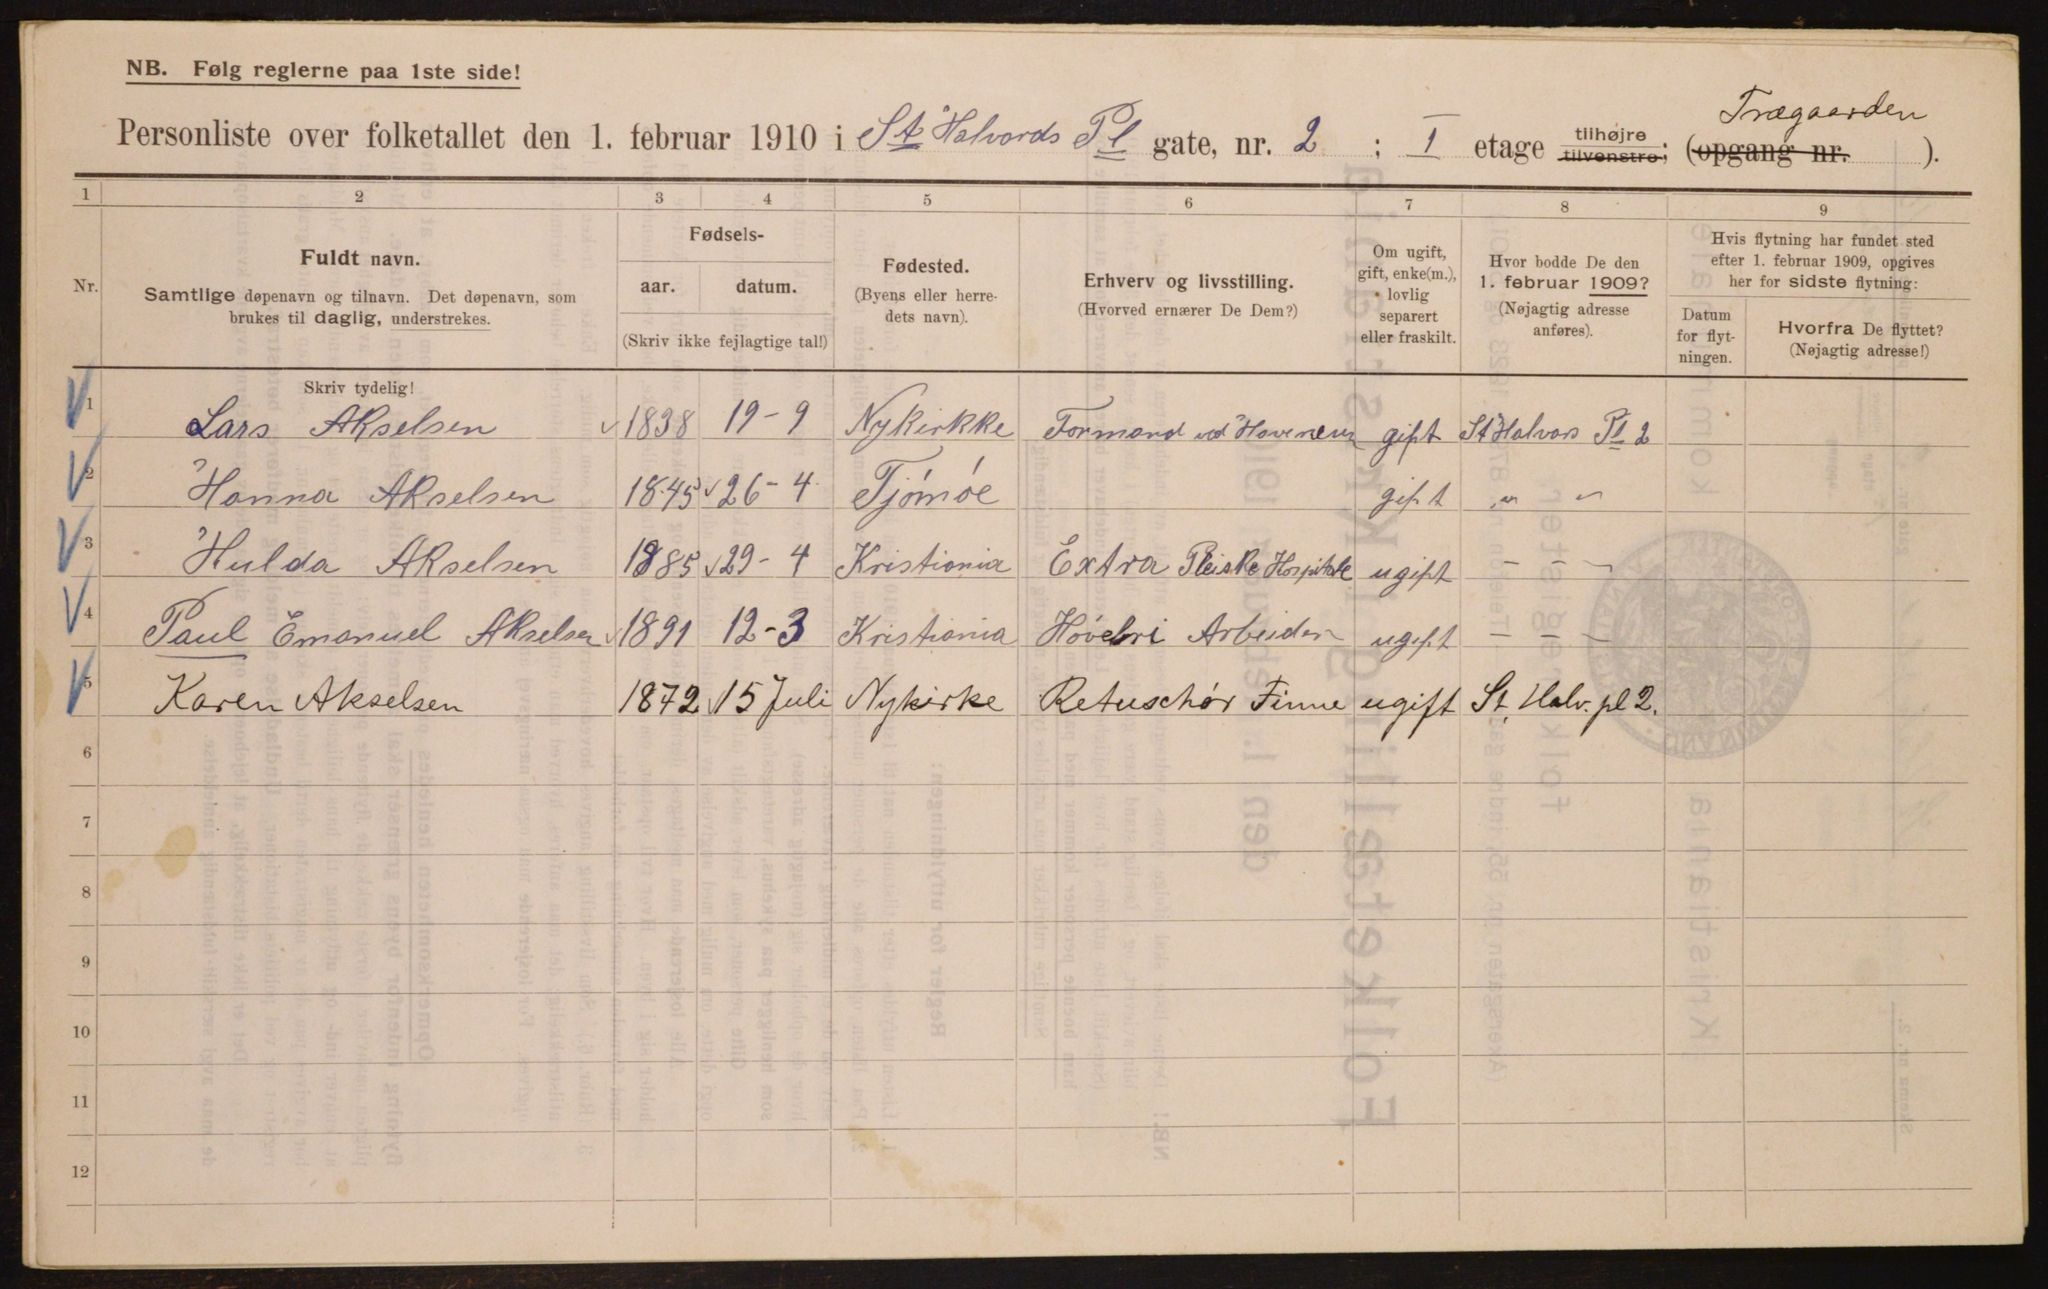 NB. Følg reglerne paa 1ste side!
Trægaarden
Personliste over folketallet den 1. februar 1910 i St Halvards Pl gate, nr. 2 ; I etage tilhøjre tilvenstre; (opgang nr. ).
1 2 3 4 5 6 7 8 9
Nr.
Fuldt navn.
Samtlige døpenavn og tilnavn. Det døpenavn, som
brukes til daglig, understrekes.
Fødsels-
aar. datum.
(Skriv ikke fejlagtige tal!)
Fødested.
(Byens eller herre-
dets navn).
Erhverv og livsstilling.
(Hvorved ernærer De Dem?)
Om ugift,
gift, enke(m.),
lovlig
separert
eller fraskilt.
Hvor bodde De den
1. februar 1909?
(Nøjagtig adresse
anføres).
Hvis flytning har fundet sted
efter 1. februar 1909, opgives
her for sidste flytning:
Datum
for flyt-
ningen.
Hvorfra De flyttet?
(Nøjagtig adresse!)
Skriv tydelig!
1 Lars Akselsen 1838 19-9 Nykirkke Formand ved gift St Halvars Pl 2
2 Hanna Akselsen 1845 26-4 Tjømøe gift " "
3 Hulda Akselsen 1885 29-4 Kristiania Extra Pleiske Hospitale ugift - - -
4 Paul Emanuel Akselsen 1891 12-3 Kristiania Høveleri Arbeider ugift - - -
5 Karen Akselsen 1872 15 Juli Nykirke Retuschør Finne ugift St. Halv. pl 2.
6
7
8
9
10
11
12